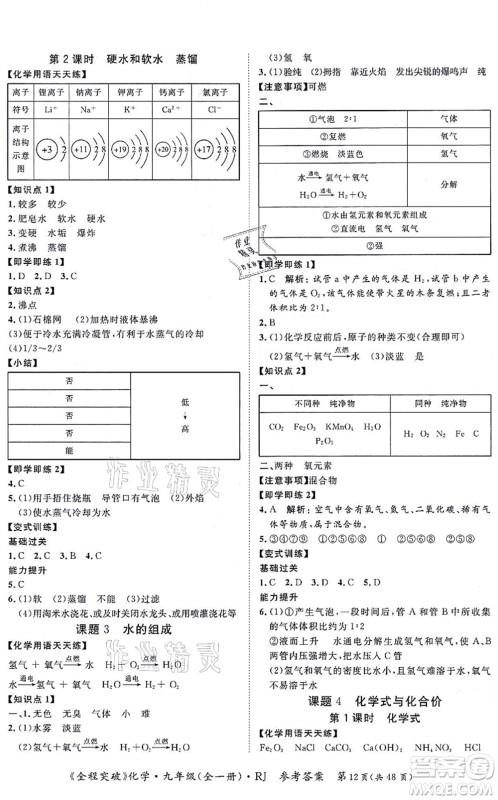 第2课时　硬水和软水　蒸馏
【化学用语天天练】
离子 锂离子 钠离子 钾离子 钙离子 氯离子
符号 Li⁺ Na⁺ K⁺ Ca²⁺ Cl⁻
离子结构示意图 +3 2 +11 2 8 +19 2 8 8 +20 2 8 8 +17 2 8 8
【知识点1】
1. 较多　较少
2. 肥皂水　软水　硬水
3. 变硬　水垢　爆炸
4. 煮沸　蒸馏
【即学即练1】
1. D　2. A　3. D
【知识点2】
2. 沸点
4. (1)石棉网　(2)加热时液体暴沸
(3)便于冷水充分冷凝水蒸气的水
(4)1/3～2/3
【小结】
否
否 低
否 高
能
【即学即练2】
4. C
5. (1)用手捂住烧瓶　导管口有气泡　(2)外焰
(3)使水蒸气冷却成水
【变式训练】
基础过关
1. C　2. C　3. B　4. C　5. D
能力提升
6. (1)软　(2)蒸馏　(3)不一定
(4)用淘米水浇花或随手关闭水龙头、或用洗菜的水冲厕所
课题3　水的组成
【化学用语天天练】
氢气＋氧气 点燃 水　H₂＋O₂ 点燃 H₂O
水 通电 氢气＋氧气　H₂O 通电 H₂＋O₂
【知识点1】
一、1. 无色　无臭　气体　小　难
2. (1)水雾　淡蓝
(2)氢气＋氧气 点燃 水　H₂＋O₂ 点燃 H₂O
(3)氢　氧
3. (1)验纯　(2)拇指　靠近火焰　发出尖锐的爆鸣声　纯
【注意事项】可燃
二、
①气泡　2∶1 气体
②复燃 氧气
③燃烧　淡蓝色 氢气
水 通电 氢气＋氧气 分解
①水由氢元素和氧元素组成
②直流电　氢气　氧气　2∶1
②强
【即学即练1】
1. C　解析：试管a中产生的气体是H₂，试管b中产生的气体是O₂，能使带火星的木条复燃，且二者体积比为2∶1。
2. B
3. (1)化学反应前后，原子的种类不变　(2)氢气
(2)氢气＋氧气 点燃 水　(3)淡蓝　是
【知识点2】
一、
不同种　纯净物 同种　纯净物
CO₂　Fe₂O₃　KMnO₄　P₂O₅ H₂　O₂　N₂　Fe　C
二、两种　氧元素
【注意事项】混合物
【即学即练2】
4. A　解析：空气中含有氧气、氮气、二氧化碳、稀有气体等物质，属于混合物。
5. ③④⑦⑨　①②⑤⑥⑧　①⑧　②⑤⑥　②⑤
【变式训练】
基础过关
1. B　2. C　3. B　4. D　5. C
能力提升
6. (1)①产生气泡，一段时间后，正极与负极产生的气体体积比约为1∶2
②液面上升　水通电分解生成氢气和氧气，氢气、氧气不易溶于水，气体增多，压强变大
(2)水 通电 氢气＋氧气
课题4　化学式与化合价
第1课时　化学式
【化学用语天天练】
Fe₂O₃　NaCl　CaCO₃　Na₂CO₃　Al₂O₃　AgCl
《全程突破》化学·九年级(全一册)·RJ　参考答案　第12页(共48页)
作业精灵